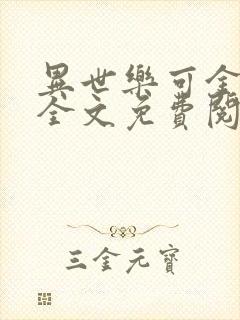 異世樂可全
全文免費閱
三金元寶